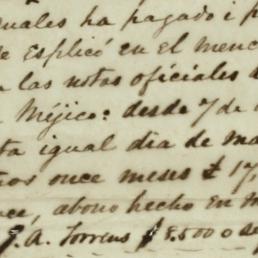 uales ha pagado i p
e esplicó en el menc
a las notas oficiales d
Méjico: desde 7 de
ta igual dia de ma
os once meses £ 17,
ce, abono hecho en m
J. A. Torrens $ 8.500 o se